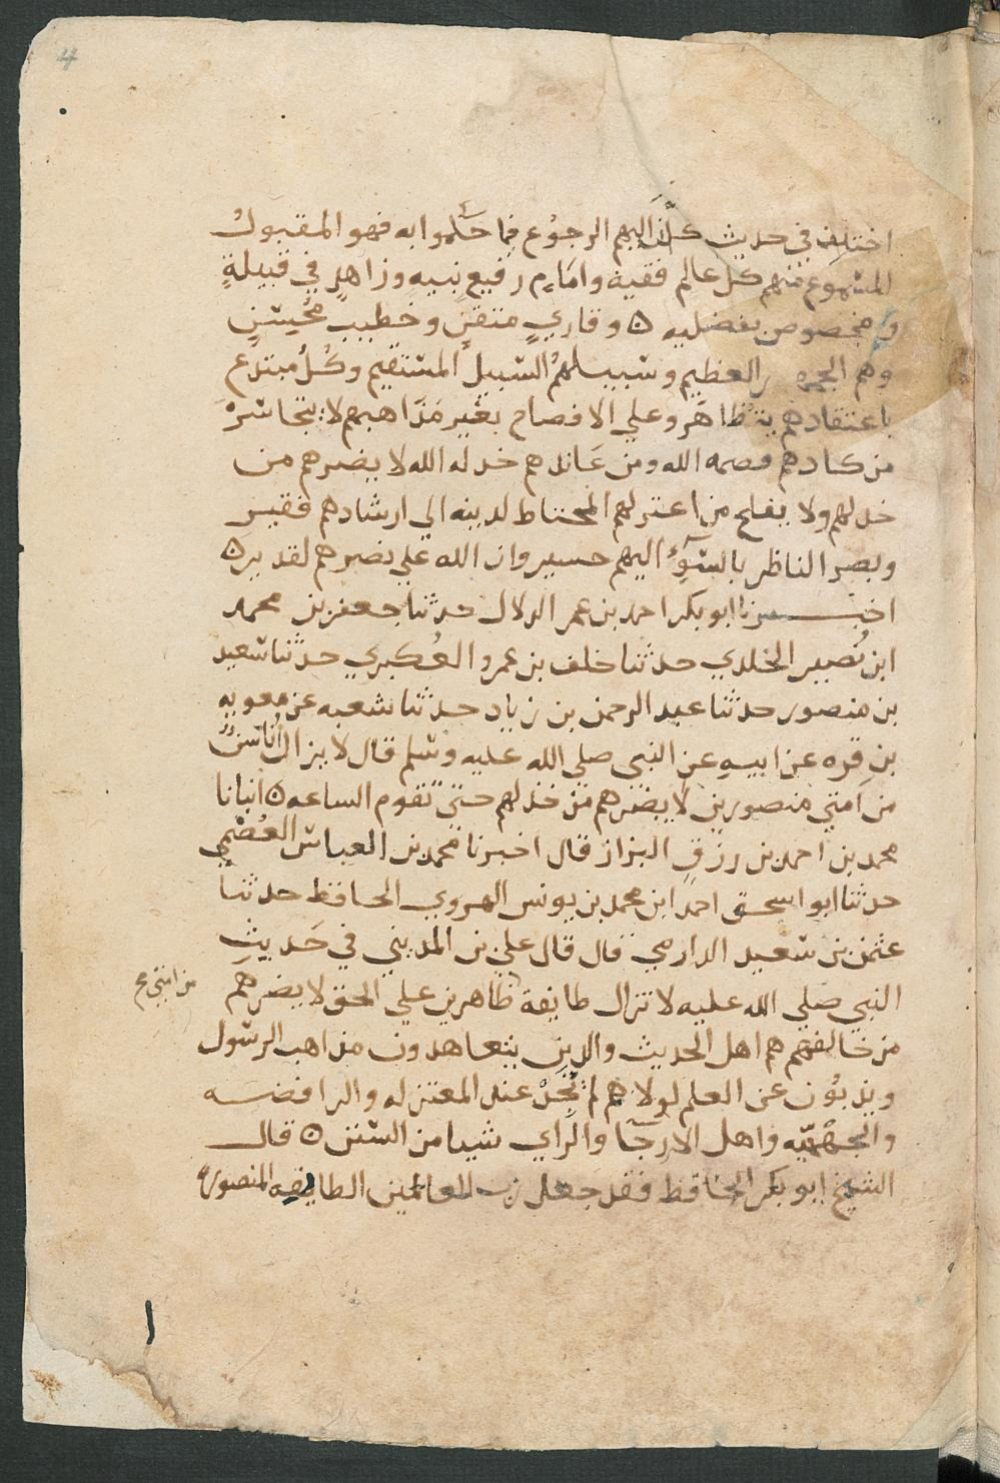 4
اختلف في حديث كان اليهم الرجوع فما حكموا به فهو المقبول
المسموع منهم كل عالم فقيه وامام رفيع نبيه وزاهد في قبيلة
ومخصوص بفضيله ۞ وقاري متقن وخطيب محسن
وهم الجمهور العظيم وسبيلهم السبيل المستقيم وكل مبتدع
باعتقادهم يتظاهر وعلى الافصاح بغير مذاهبهم لا يتجاسر
من كادهم قصمه الله ومن عاندهم خذله الله لا يضرهم من
خذلهم ولا يفلح من اعتزلهم المحتاط لدينه الي ارشادهم فقير
وبصر الناظر بالسوء اليهم حسير وان الله علي نصرهم لقدير ۞
اخبرنا ابو بكر احمد بن عمر الدلال حدثنا جعفر بن محمد
ابن نصير الخلدي حدثنا خلف بن عمرو العكبري حدثنا سعيد
بن منصور حدثنا عبد الرحمن بن زياد حدثنا شعبه عن معويه
بن قره عن ابيه عن النبي صلي الله عليه وسلم قال لا يزال اناس
من امتي منصورين لا يضرهم من خذلهم حتى تقوم الساعه ۞ انبانا
محمد بن احمد بن رزق البزاز قال اخبرنا محمد بن العباس العصمي
حدثنا ابو اسحق احمد ابن محمد بن يونس الهروي الحافظ حدثنا
عثمن بن سعيد الدارمي قال قال علي بن المديني في حديث
النبي صلي الله عليه لا تزال طايفة ظاهرين علي الحق لا يضرهم
من امتي صح
من خالفهم هم اهل الحديث والذين يتعاهدون مذاهب الرسول
ويذبون عن العلم لولاهم لم تجد عند المعتزله والرافضه
والجهميه واهل الارجا والراي شيا من السنن ۞ قال
الشيخ ابو بكر الحافظ فقد جعل رب العالمين الطايفه المنصوره